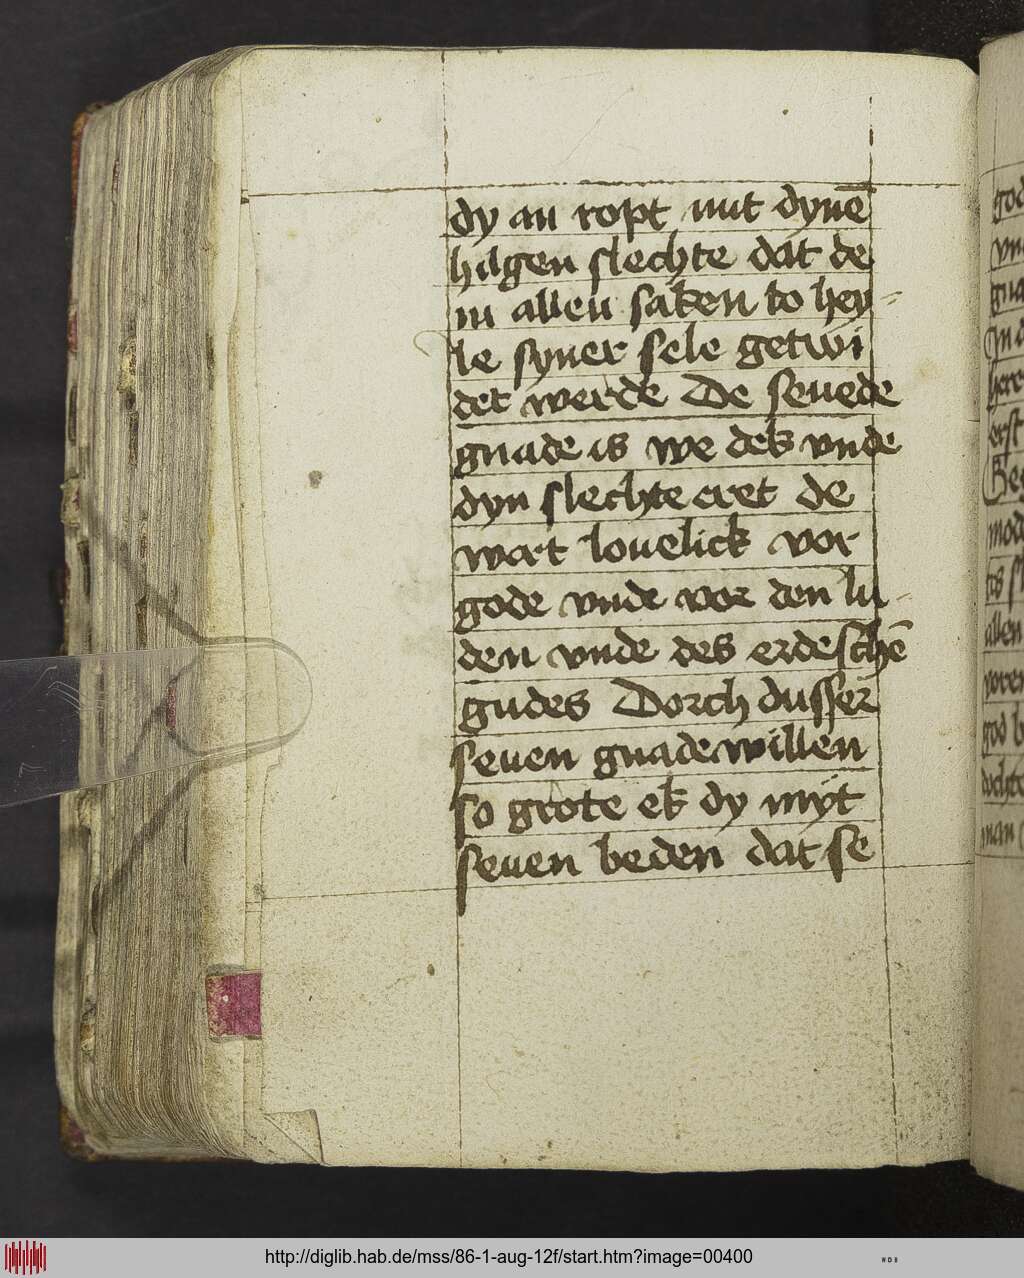 dy an ropt mit dynē
hilgen slechte dat de
in allen saken to hey-
le syner sele getwi
det werde De seuede
gnade is we dek vnde
dyn slechte eret de
wert louelick vor
gode vnde vor den lu-
den vnde des erdeschē
gudes Dorch dusser
seuen gnade willen
so grote ek dy myt
seuen beden dat se
http://diglib.hab.de/mss/86-1-aug-12f/start.htm?image=00400